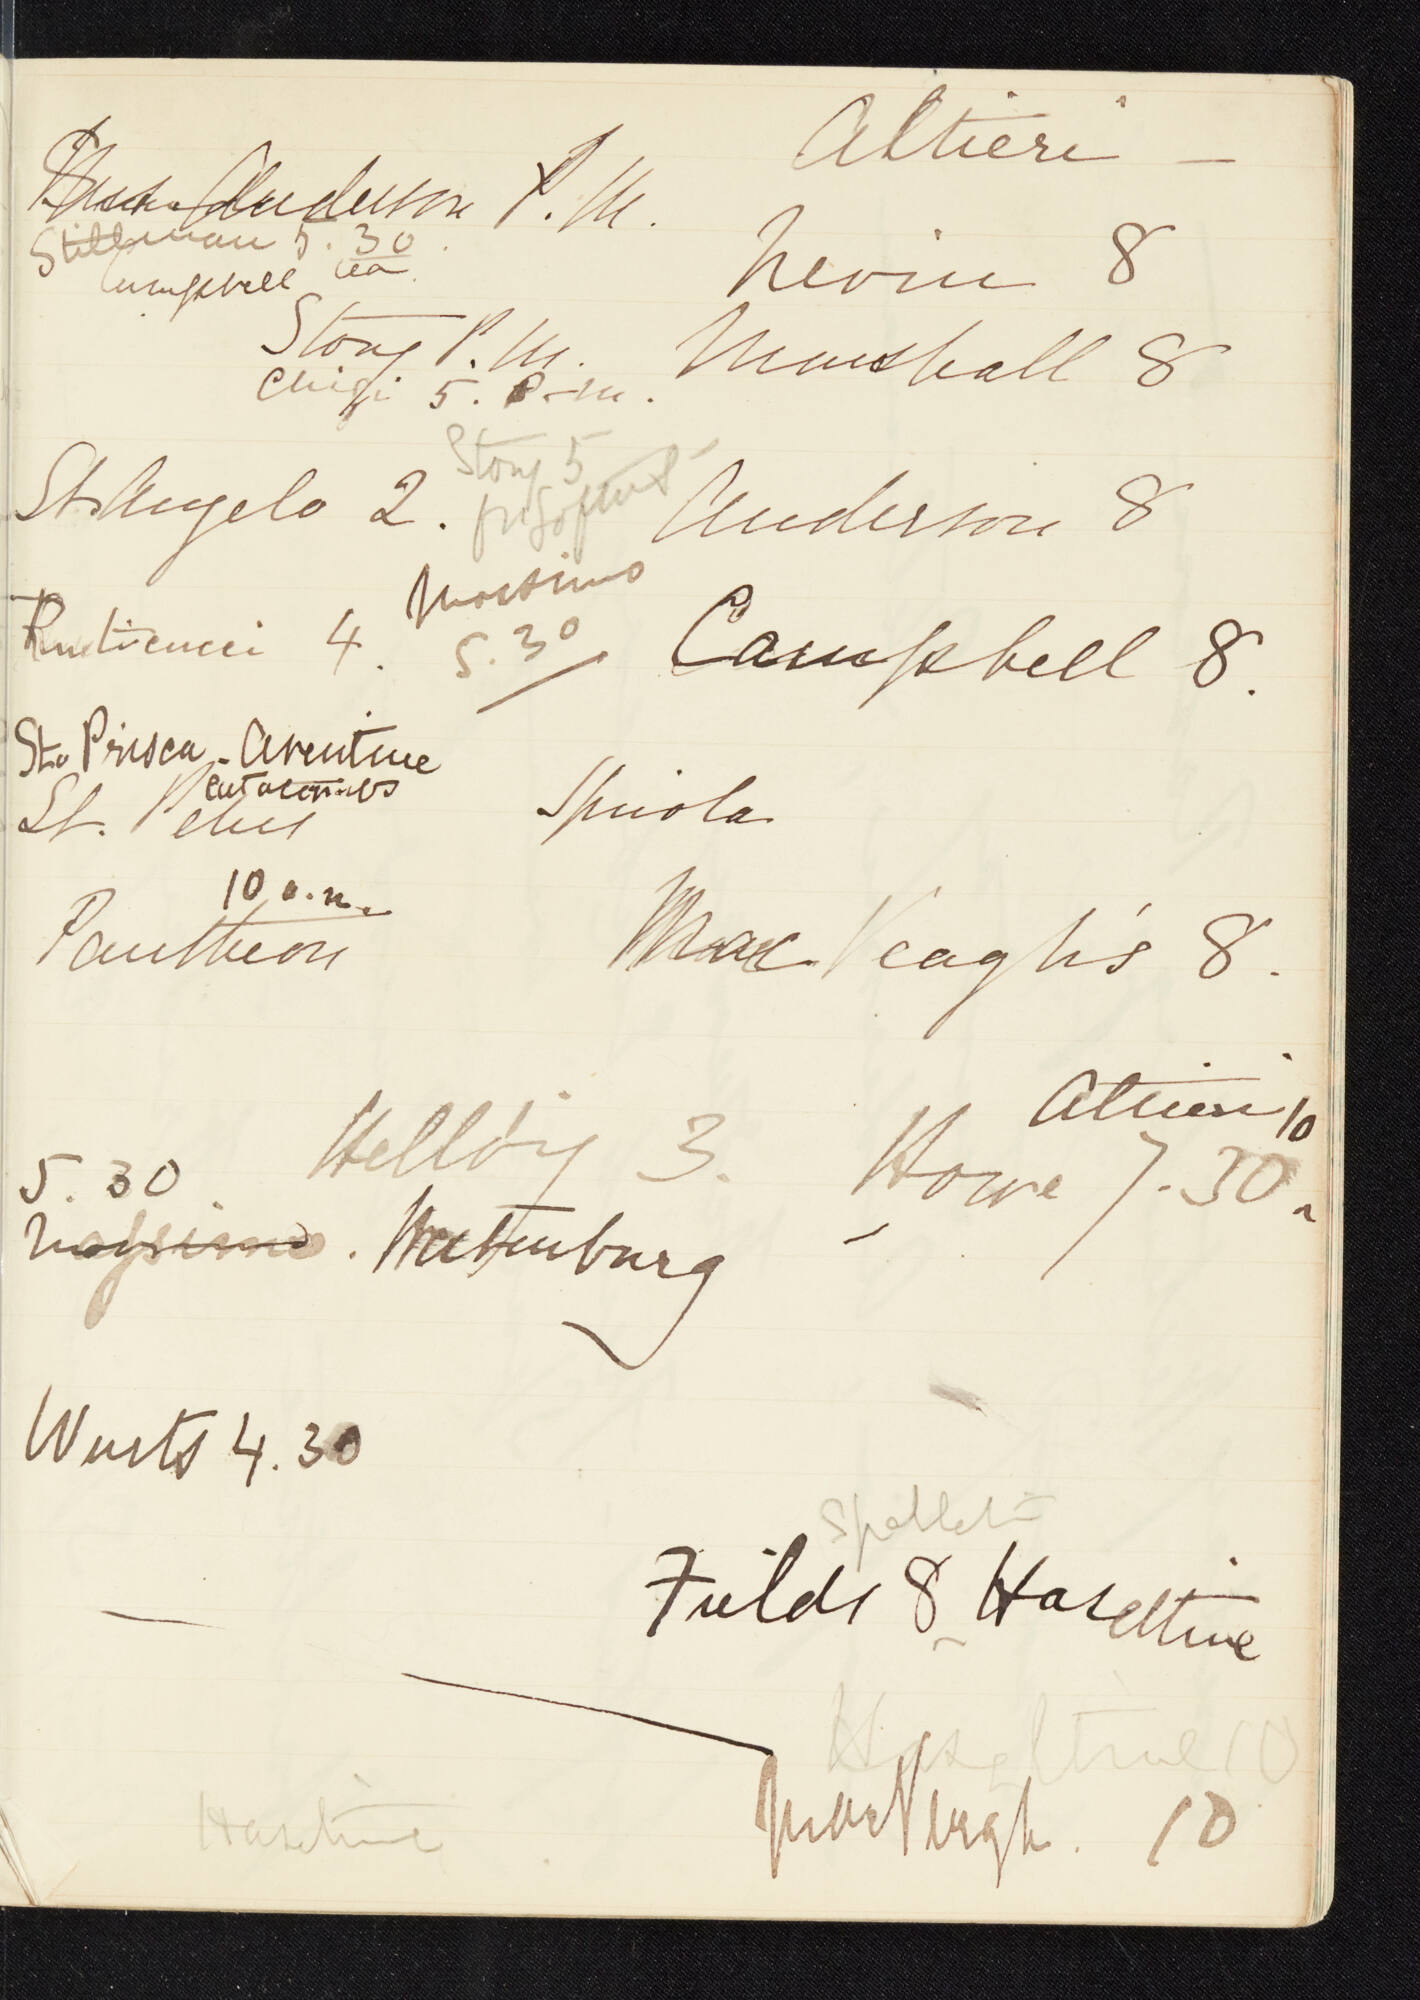 Altieri -
Anderson P.M.
Stillman 5.30
Campbell tea
Nevin 8
Story P.M.
Marshall 8
Chigi 5. P.M.
Story 5
St Angelo 2.
Anderson 8
Massimo
5.30
Rusticucci 4.
Campbell 8.
Sta Prisca - Aventine
Catacombs
St. Peters
Spinola
10 a.m.
Pantheon
MacVeagh's 8.
Altieri 10
Hellbig 3.
Howe 7.30
5.30
Massimo.
Wurts 4.30
Fields 8 Haseltine
Haseltine 10
MacVeagh. 10
Haseltine